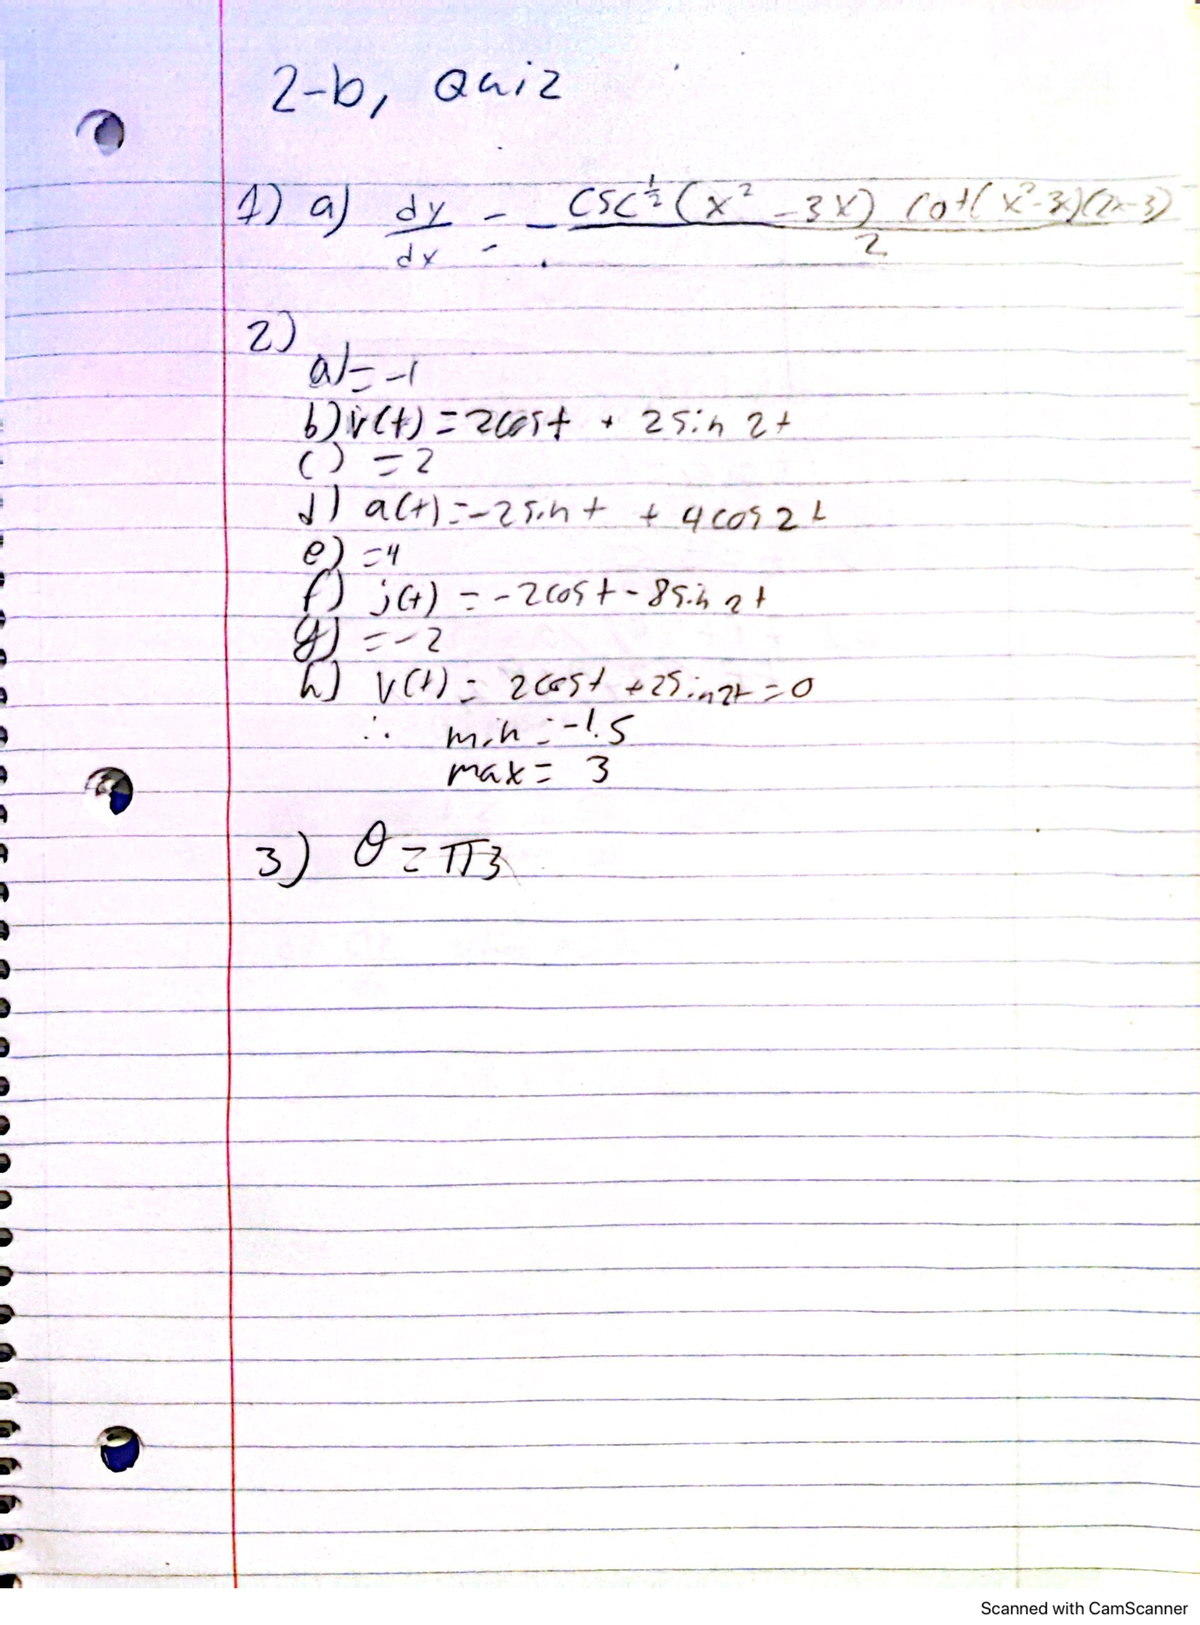 2-b, Quiz
1) a) dy/dx = - csc^½(x² - 3x) cot(x²-3x)(2x-3) / 2
2)
a) = -1
b) v(t) = 2cost + 2sin2t
c) = 2
d) a(t) = -2sint + 4cos2t
e) = 4
f) j(t) = -2cost - 8sin2t
g) = -2
h) v(t) = 2cost + 2sin2t = 0
∴ min = -1.5
max = 3
3) θ = π3
Scanned with CamScanner